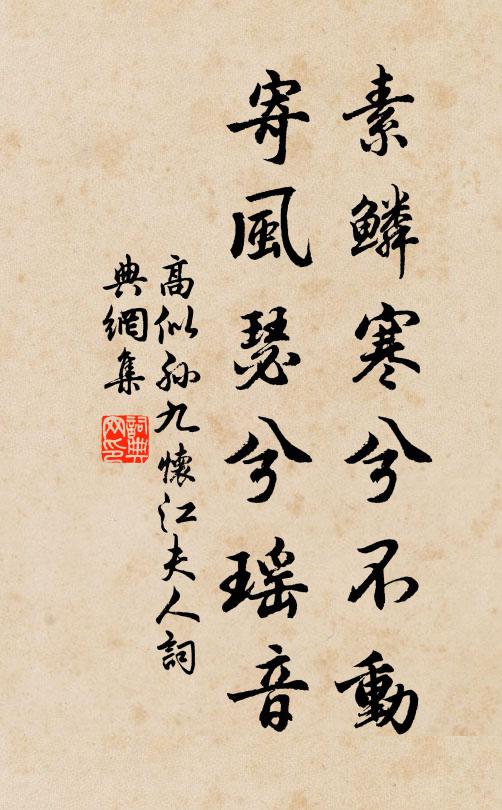 素鱗寒兮不動
寄風瑟兮瑤音
高似孫九懷江夫人詞
典網集
詞典
网印